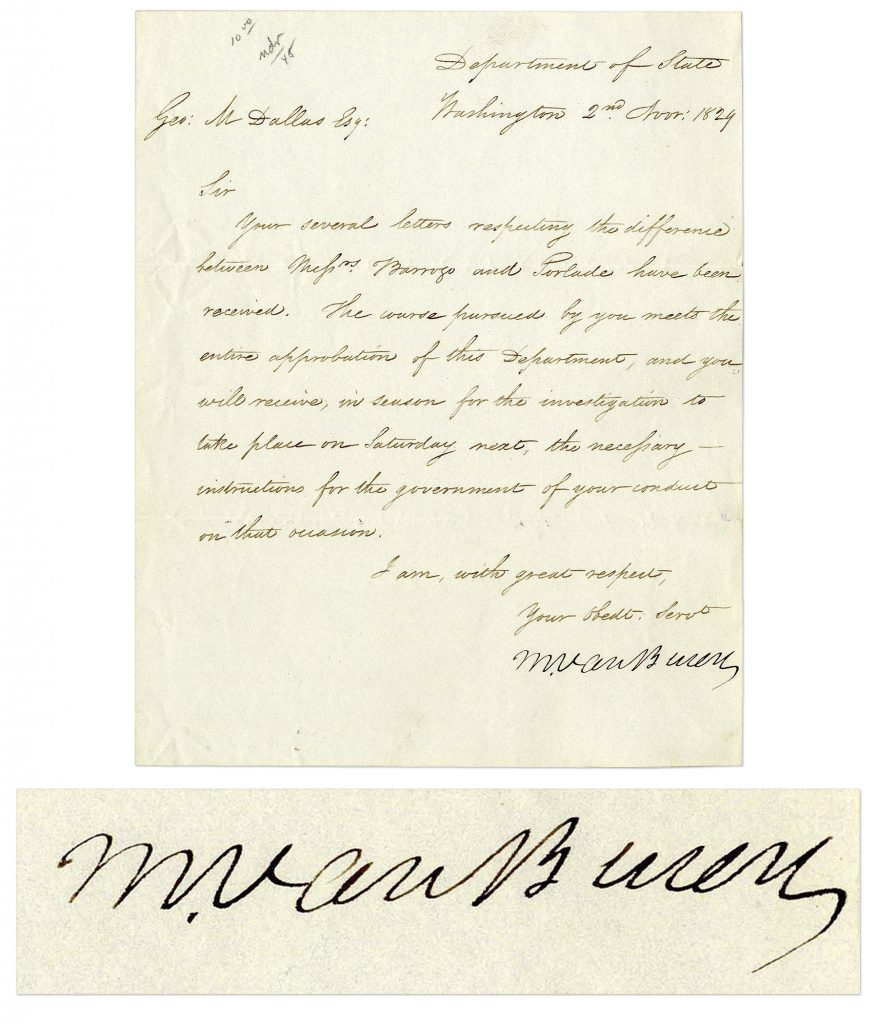 10 00
ndv/45
Department of State
Geo: M Dallas Esq: Washington 2nd. Novr: 1829
Sir
Your several letters respecting the difference
between Messrs. Barrozo and Torlade have been
received. The course pursued by you meets the
entire approbation of this Department, and you
will receive, in season for the investigation to
take place on Saturday next, the necessary —
instructions for the government of your conduct
on that occasion.
I am, with great respect,
Your Obedt. Servt
M. Van Buren
M. Van Buren